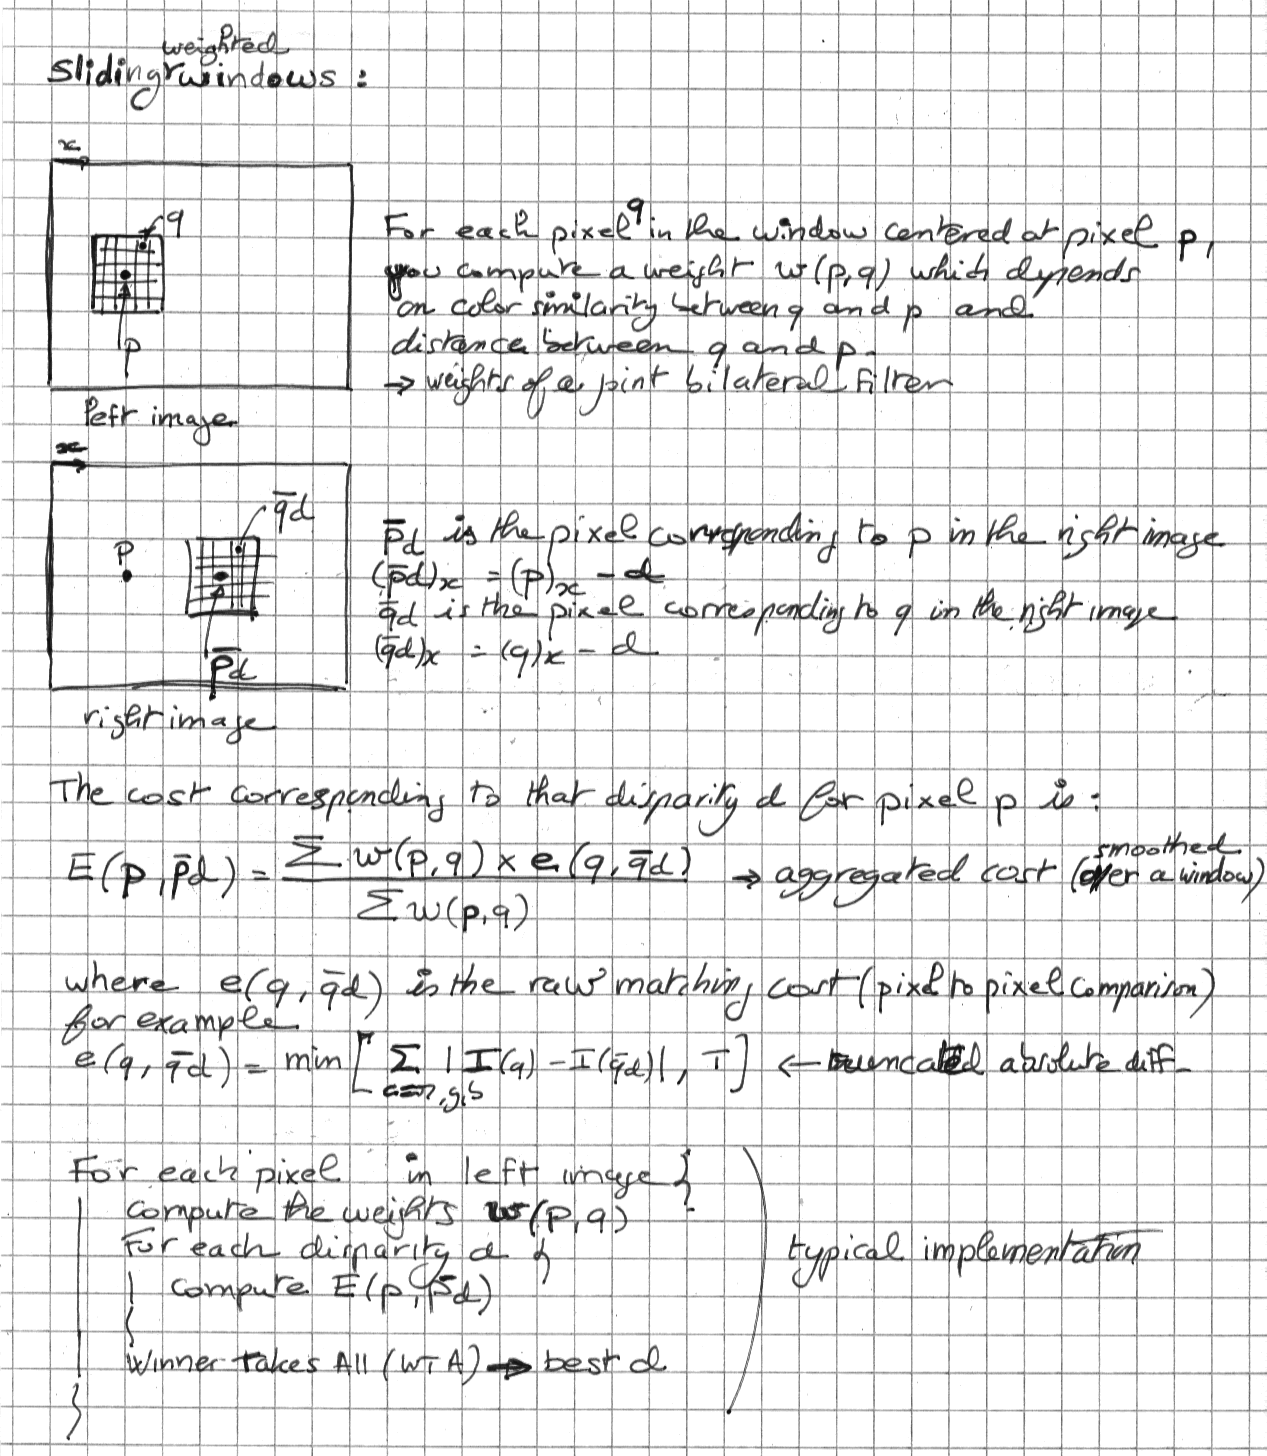 Sliding weighted windows :
x
q
p
left image
For each pixel q in the window centered at pixel p,
you compute a weight w(p,q) which depends
on color similarity between q and p and
distance between q and p.
→ weights of a joint bilateral filter
x
q̄d
p
p̄d
right image
p̄d is the pixel corresponding to p in the right image
(p̄d)x = (p)x - d
q̄d is the pixel corresponding to q in the right image
(q̄d)x = (q)x - d
The cost corresponding to that disparity d for pixel p is :
E(p, p̄d) = Σ w(p,q) × e(q, q̄d) / Σ w(p,q) → aggregated cost (smoothed over a window)
where e(q, q̄d) is the raw matching cost (pixel to pixel comparison)
for example
e(q, q̄d) = min [ Σ c=r,g,b | I(q) - I(q̄d) | , T ] ← truncated absolute diff-
For each pixel in left image {
compute the weights w(p,q)
For each disparity d {
compute E(p, p̄d)
}
Winner Takes All (WTA) → best d
}
typical implementation